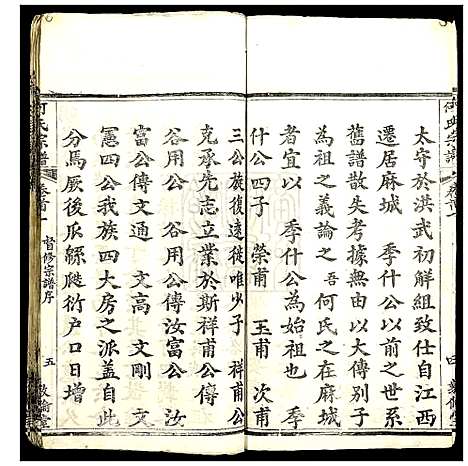 何氏宗譜
太守於洪武初解組致仕自江西
遷居麻城　季什公以前之世系
舊譜散失考據無由以大傳別子
為祖之義論之吾何氏之在麻城
者宜以　季什公為始祖也　季
什公四子　榮甫　玉甫　次甫
三公族復遠徙唯少子　祥甫公
克承先志立業於斯祥甫公傳
谷用公　谷用公傳汝富公　汝
富公傳文通　文高　文剛　文
憲四公我族四大房之派蓋自此
分焉厥後瓜緜瓞衍户口日增
何氏宗譜　卷首一　督修宗譜序　五　敦倫堂